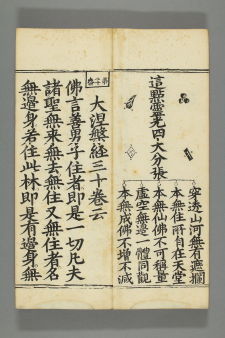 這點靈光四大分張
穿透山河無有遮攔
本無住所自在天堂
本無仙佛不可稱量
虛空無邊一體同觀
本無成佛不增不減
大涅槃経三十卷云
佛言善男子住者即是一切凡夫
諸聖無来無去無住又無住者名
無邊身若住此林即是有邊身無